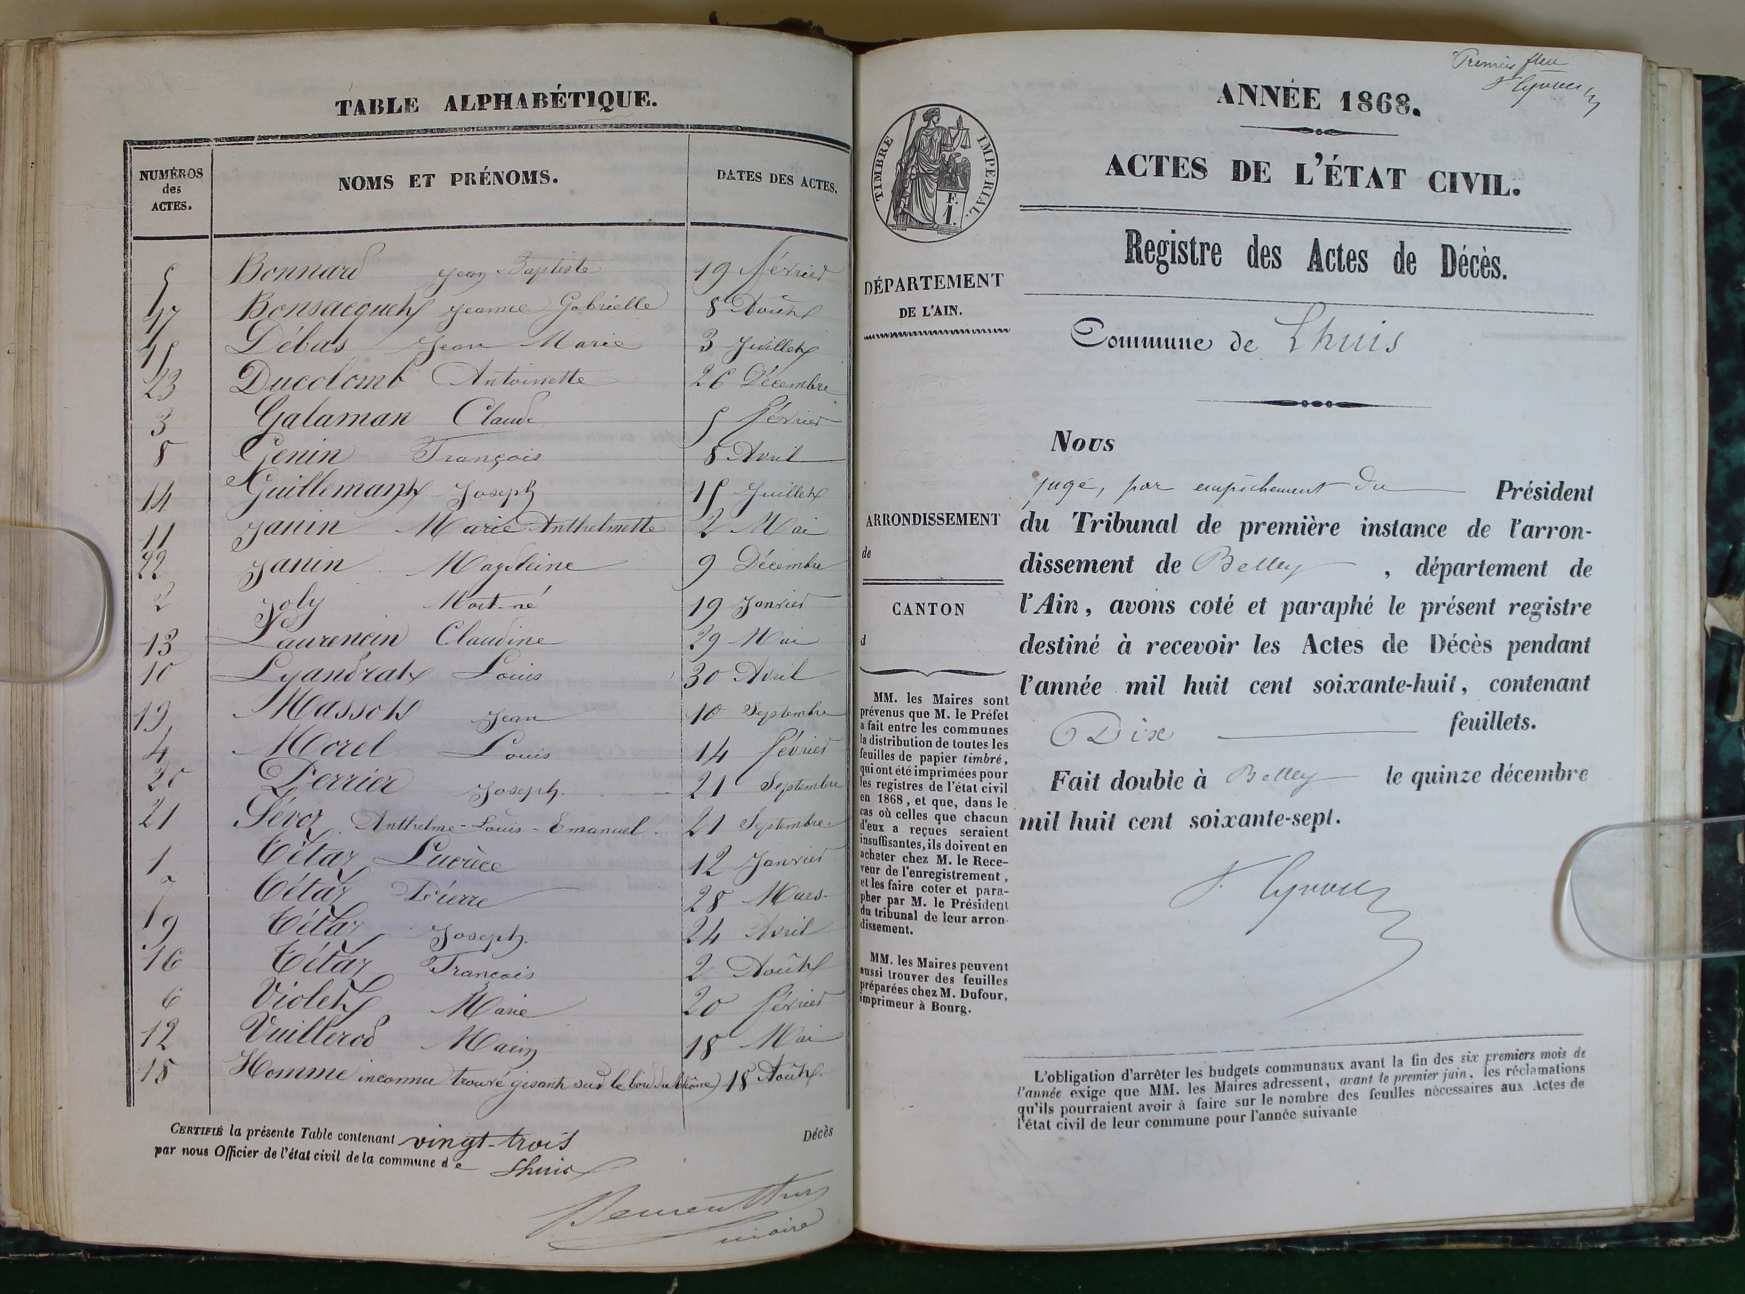 TABLE ALPHABÉTIQUE.
NUMÉROS des ACTES.
NOMS ET PRÉNOMS.
DATES DES ACTES.
5 Bonnard Jean-Baptiste 19 février
17 Jeanne Gabrielle 8 Août
Débus Jean Marie 3 Juillet
23 Ducolomb Antoinette 26 Décembre
3 Galaman Claude 5 février
8 Genin François 8 Avril
14 Guillemant Joseph 15 Juillet
11 Janin Marie Anthelmette 2 Mai
22 Janin Magdeleine 9 Décembre
2 Joly Mort-né 19 Janvier
13 Laurencin Claudine 29 Mai
10 Lyandrat Louis 30 Avril
19 Massot Jean 10 Septembre
4 Morel Louis 14 février
20 Perrier Joseph. 21 Septembre
21 Sévoz Anthelme-Louis-Emanuel. 21 Septembre
1 Tétaz Lucrèce 12 Janvier
7 Tétaz Pierre 28 Mars
9 Tétaz Joseph. 24 Avril
16 Tétaz François 2 Août
6 Violet Marie 20 février
12 Vuillerod Marin 18 Mai
18 Homme inconnu trouvé gisant sur le bord du Rhône 18 Août
CERTIFIÉ la présente Table contenant vingt-trois Décès
par nous Officier de l'état civil de la commune de Lhuis
maire
Premier
ANNÉE 1868.
ACTES DE L'ÉTAT CIVIL.
TIMBRE IMPÉRIAL.
F.
1.
Registre des Actes de Décès.
DÉPARTEMENT
DE L'AIN.
Commune de Lhuis
Nous
juge, par empêchement du Président
du Tribunal de première instance de l'arron-
dissement de Belley, département de
l'Ain, avons coté et paraphé le présent registre
destiné à recevoir les Actes de Décès pendant
l'année mil huit cent soixante-huit, contenant
Dix feuillets.
Fait double à Belley le quinze décembre
mil huit cent soixante-sept.
ARRONDISSEMENT
de
CANTON
d
MM. les Maires sont
prévenus que M. le Préfet
a fait entre les communes
la distribution de toutes les
feuilles de papier timbré,
qui ont été imprimées pour
les registres de l'état civil
en 1868, et que, dans le
cas où celles que chacun
d'eux a reçues seraient
insuffisantes, ils doivent en
acheter chez M. le Rece-
veur de l'enregistrement,
et les faire coter et para-
pher par M. le Président
du tribunal de leur arron-
dissement.
MM. les Maires peuvent
aussi trouver des feuilles
préparées chez M. Dufour,
imprimeur à Bourg.
L'obligation d'arrêter les budgets communaux avant la fin des six premiers mois de
l'année exige que MM. les Maires adressent, avant le premier juin, les réclamations
qu'ils pourraient avoir à faire sur le nombre des feuilles nécessaires aux Actes de
l'état civil de leur commune pour l'année suivante